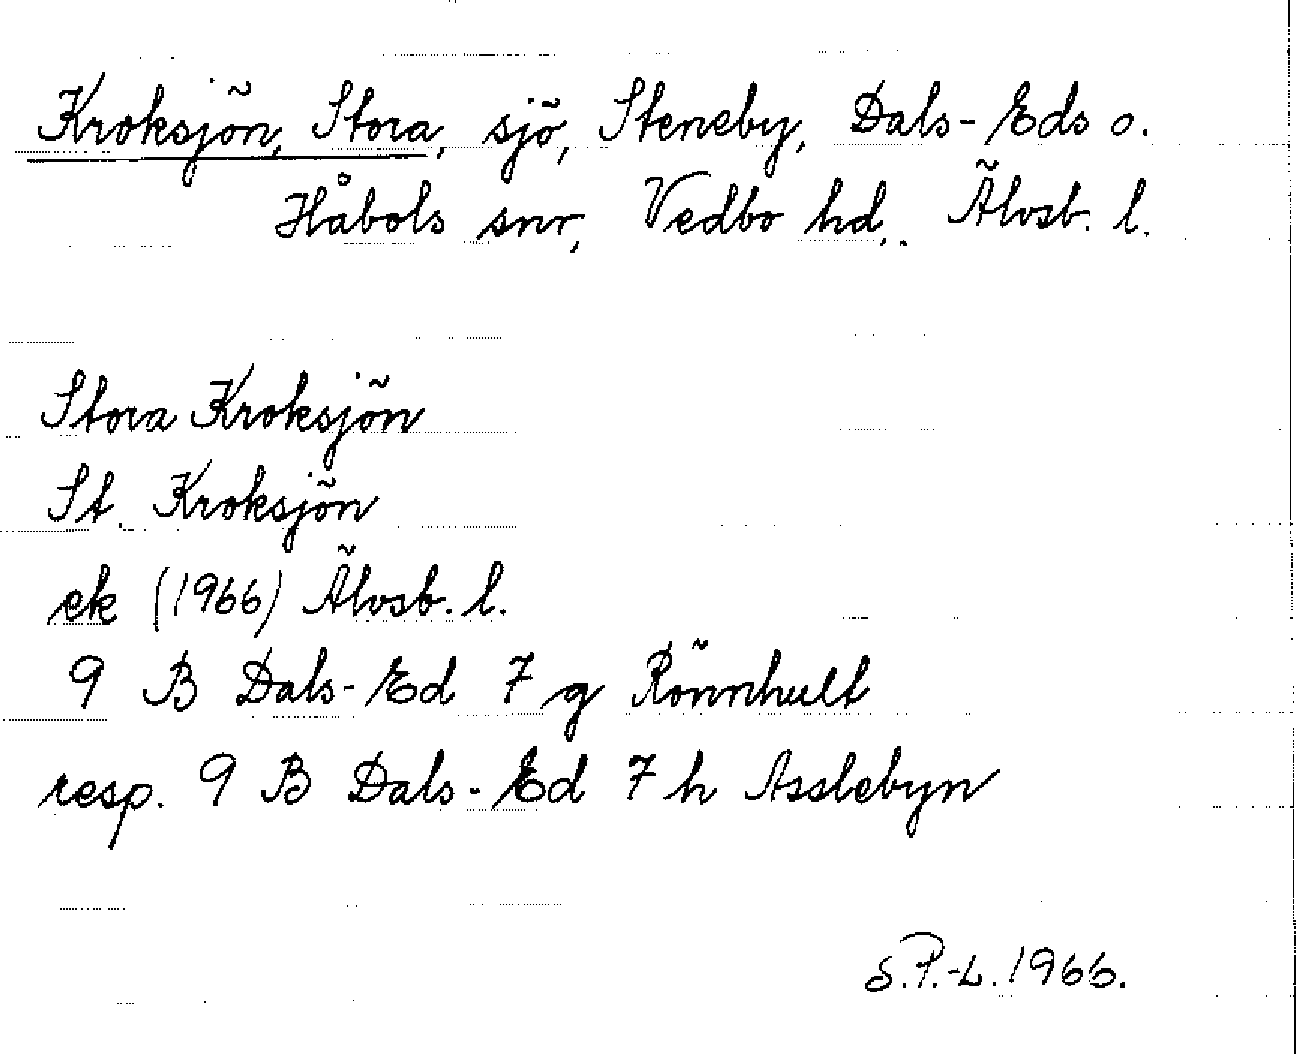 Kroksjön, Stora, sjö, Steneby, Dals-Eds o.
Håbols snr, Vedbo hd, Älvsb. l.
Stora Kroksjön
St. Kroksjön
ek (1966) Älvsb. l.
9 B Dals-Ed 7 g Rönnhult
resp. 9 B Dals-Ed 7 h Asslebyn
S.P.-L. 1966.